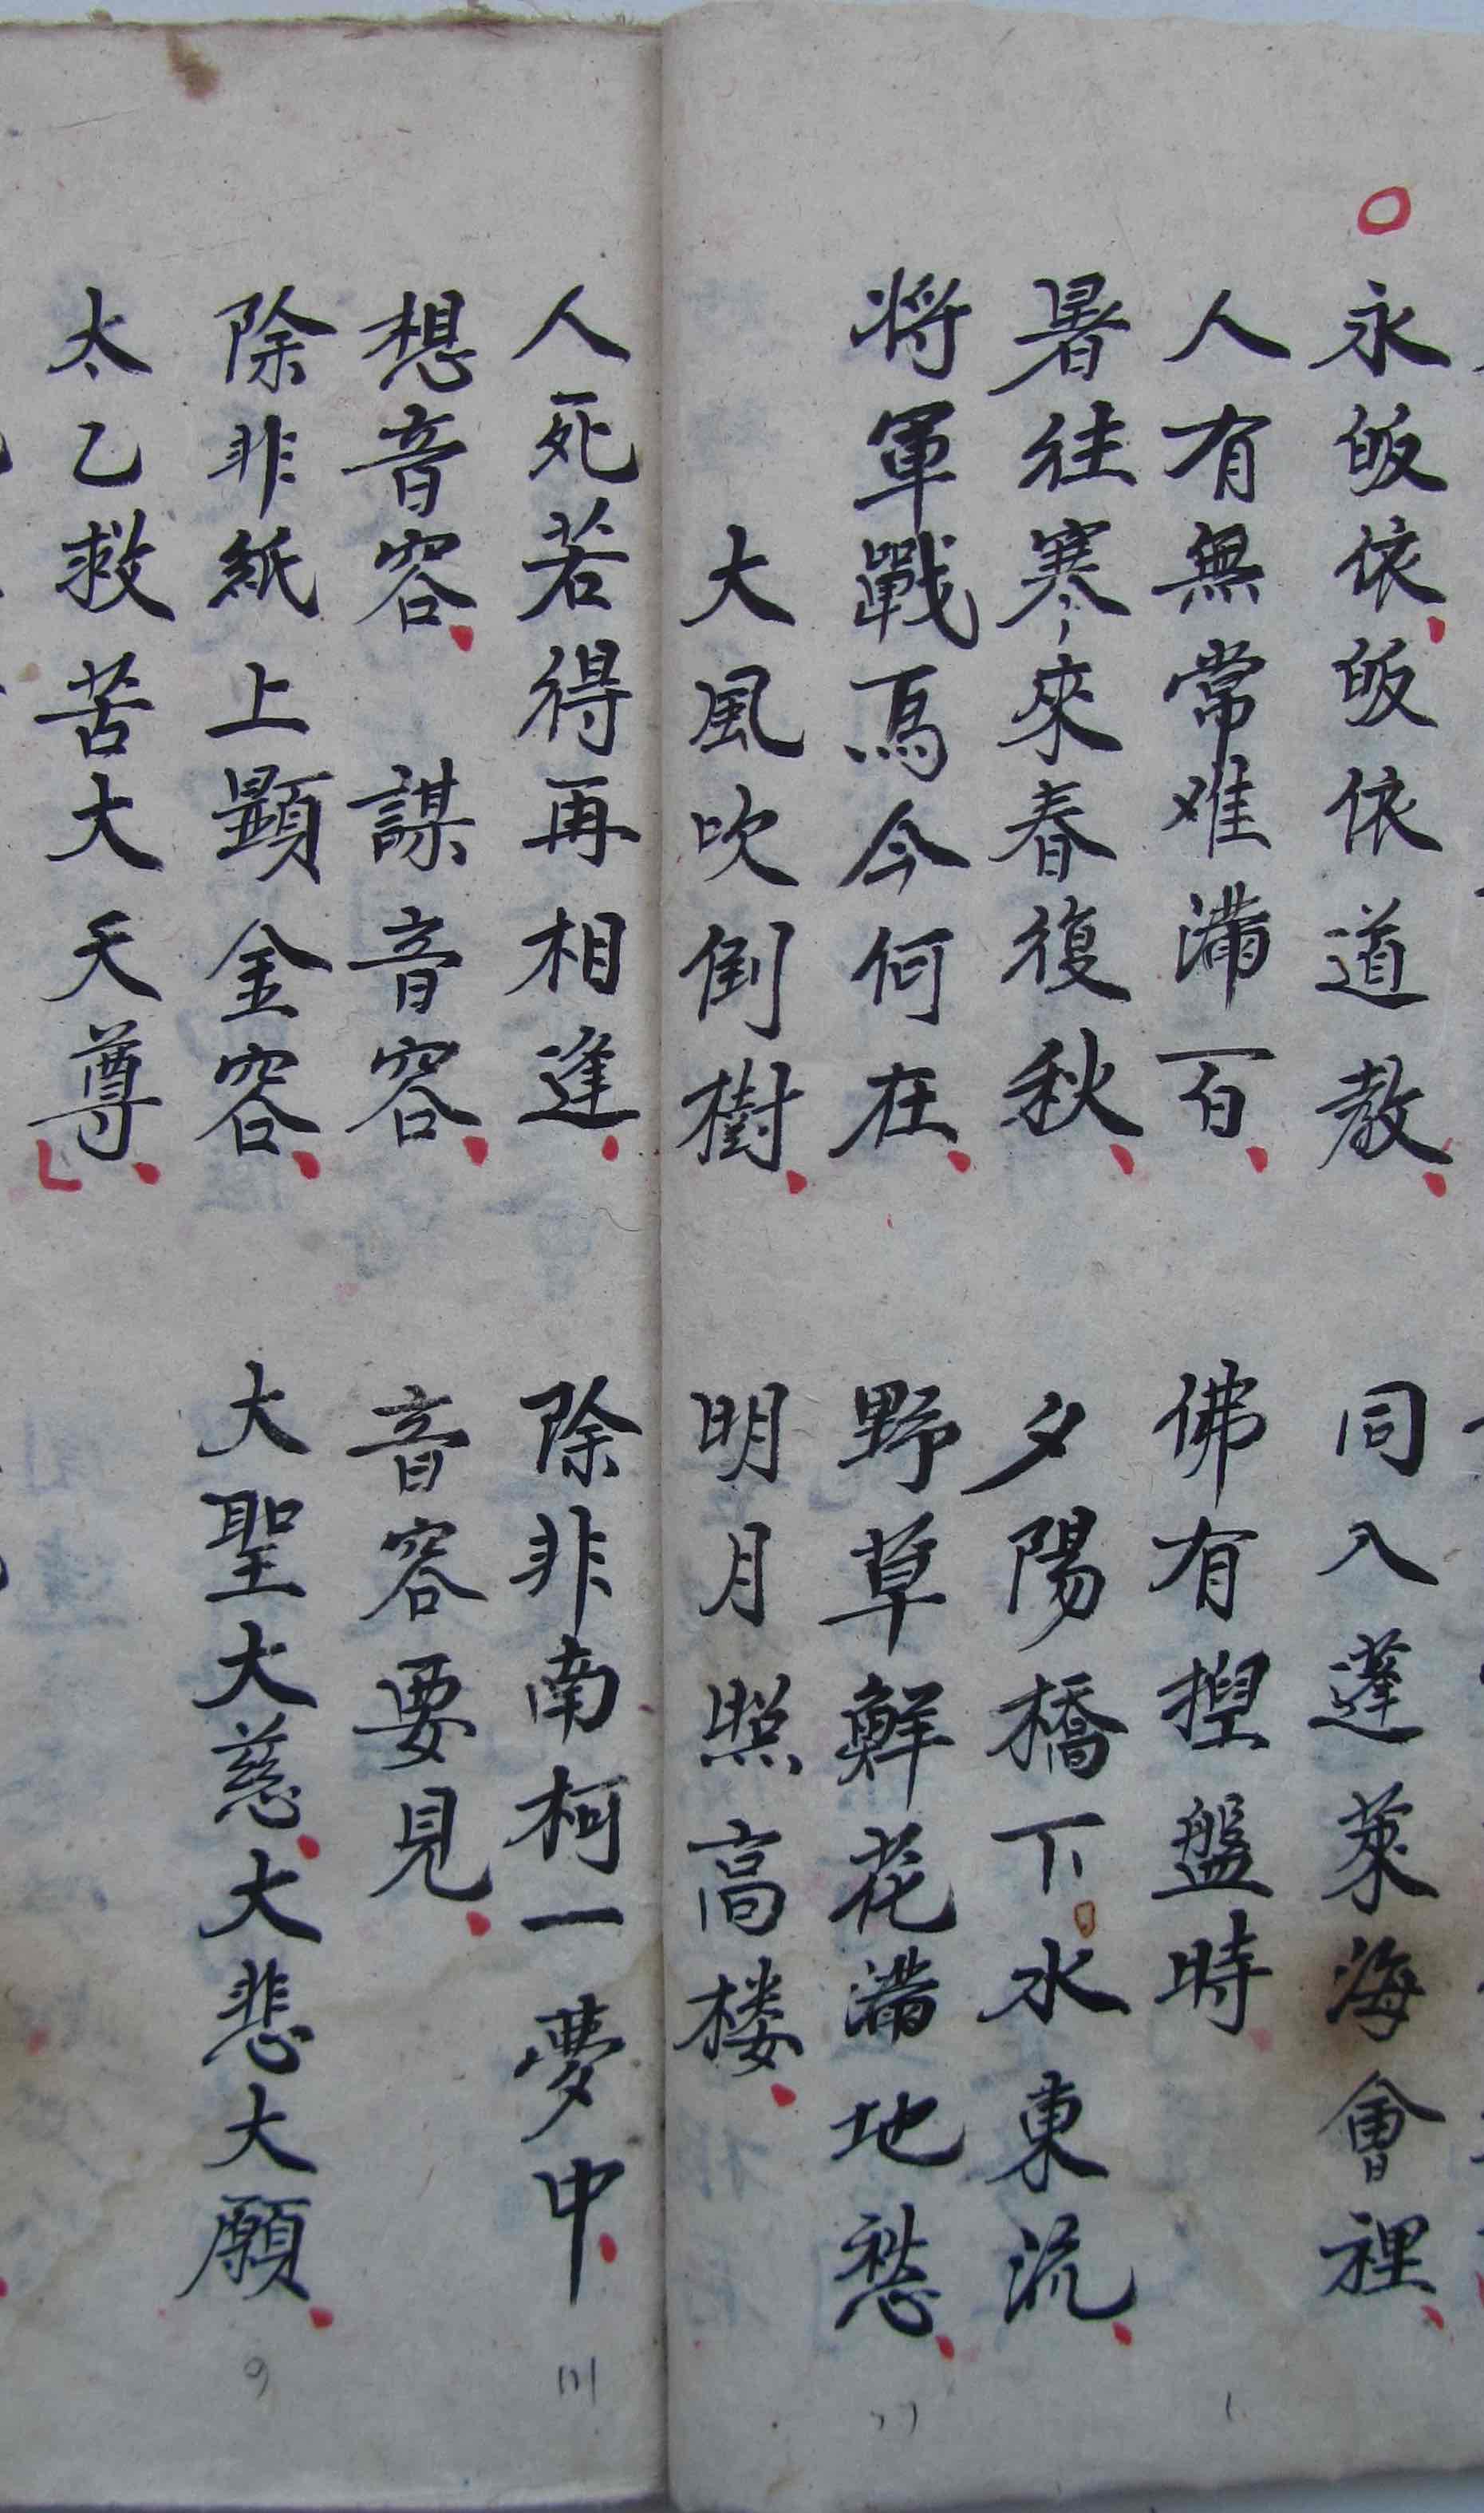 永皈依皈依道教 同入蓬萊海會裡
人有無常难满一百 佛有揑盤時
暑往寒來春復秋 夕陽橋下水東流
将軍戰馬今何在 野草鮮花满地愁
大風吹倒樹 明月照高楼
人死若得再相逢 除非南柯一夢中
想音容 謀音容 音容要見
除非紙上顕金容 大聖大慈大悲大願
太乙救苦大天尊